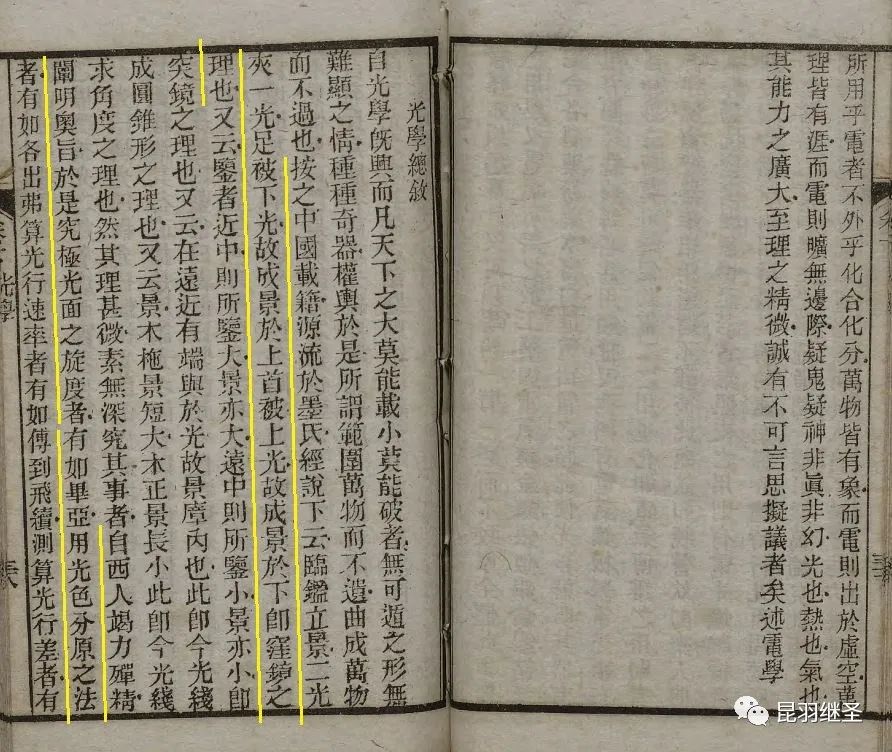 所用乎電者不外乎化合化分萬物皆有象而電則出於虛空萬
理皆有涯而電則曠無邊際疑鬼疑神非眞非幻光也熱也氣也
其能力之廣大至理之精微誠有不可言思擬議者矣述電學
光學總敘
自光學旣興而凡天下之大莫能載小莫能破者無可遁之形無
難顯之情種種奇器權輿於是所謂範圍萬物而不遺曲成萬物
而不過也按之中國載籍源流於墨氏經說下云臨鑑立景二光
夾一光足被下光故成景於上首被上光故成景於下卽窪鏡之
理也又云鑒者近中則所鑒大景亦大遠中則所鑒小景亦小卽
突鏡之理也又云在遠近有端與於光故景庫內也此卽今光綫
成圓錐形之理也又云景木柂景短大木正景長小此卽今光綫
求角度之理也然其理甚微素無深究其事者自西人竭力殫精
闡明奧旨於是究極光面之旋度者有如畢亞用光色分原之法
者有如各出弗算光行速率者有如傅到飛續測算光行差者有
光學
昆羽继圣